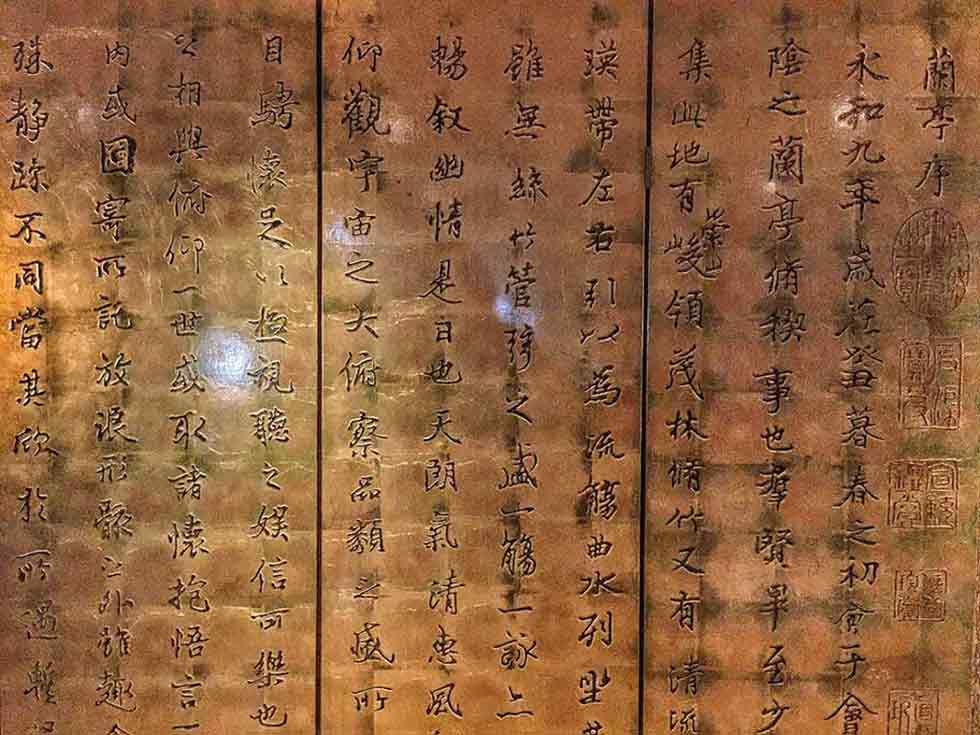 蘭亭序
永和九年歲在癸丑暮春之初會于會
陰之蘭亭脩稧事也羣賢畢至少
集此地有崇山峻領茂林脩竹又有清流
暎帶左右引以為流觴曲水列坐其
雖無絲竹管弦之盛一觴一詠
暢敘幽情是日也天朗氣清惠風
仰觀宇宙之大俯察品類之盛所
目騁懷足以極視聽之娛信可樂也
之相與俯仰一世或取諸懷抱悟言一
內或因寄所託放浪形骸之外雖趣
殊靜躁不同當其欣於所遇暫